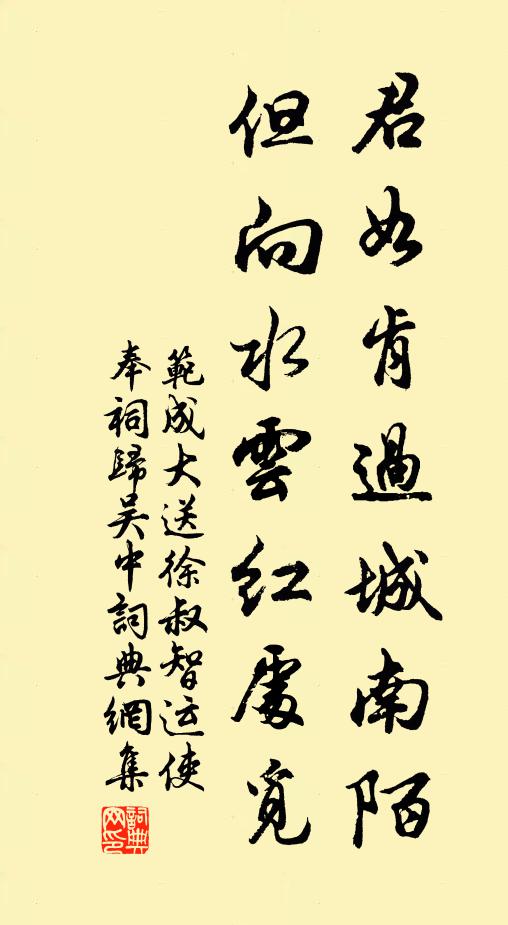 君如肯過城南陌
但向水雲紅處覓
範成大送徐叔智运使
奉祠歸吴中詞典網集
詞典
网印